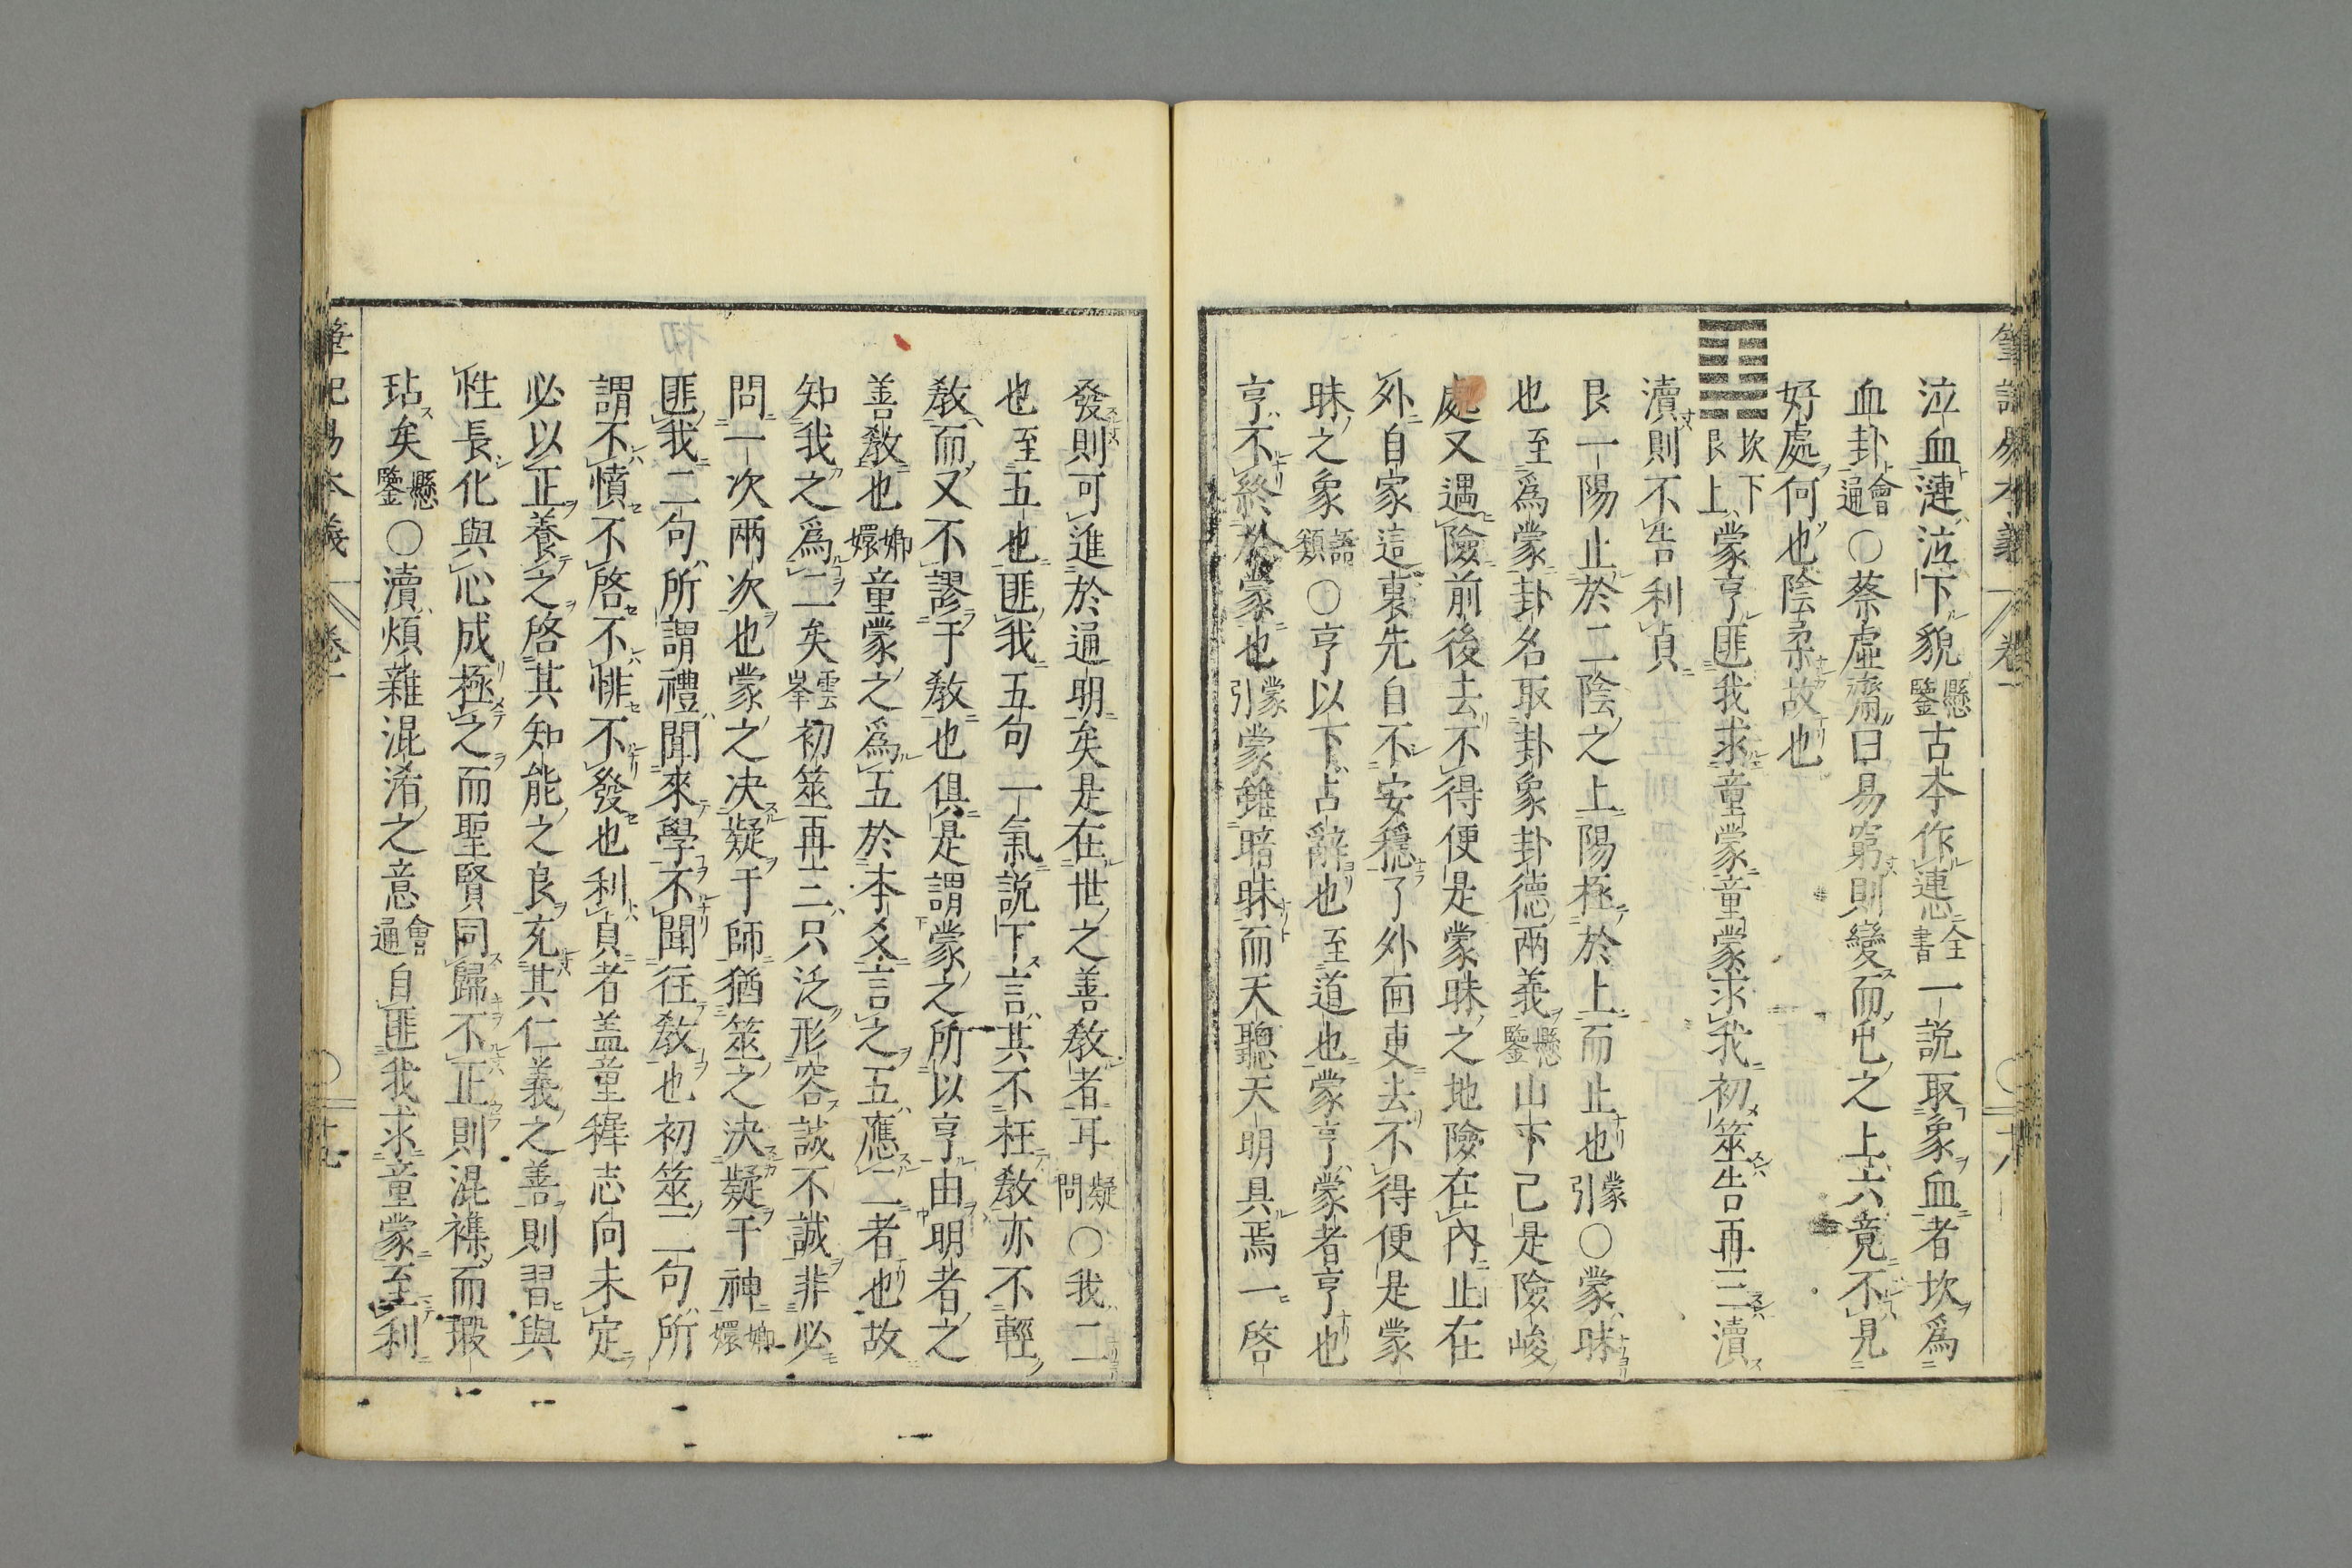 筆記易本義 卷一
泣血漣泣下貌懸鑒古本作慂全書一說取象血者坎爲
血卦會通〇蔡虛齋曰易窮則變而屯之上六竟不見
好處何也陰柔故也
坎下艮上蒙亨匪我求童蒙童蒙求我初筮告再三瀆
瀆則不告利貞
艮一陽止於二陰之上陽極於上而止也蒙引〇蒙昧
也至爲蒙卦名取卦象卦德兩義懸鑒山下已是險峻
處又遇險前後去不得便是蒙昧之地險在內止在
外自家這裏先自不安穩了外面更去不得便是蒙
昧之象語類〇亨以下占辭也至道也蒙亨蒙者亨也
亨不終於蒙也蒙引蒙雖暗昧而天聰天明具焉一啓
發則可進於通明矣是在世之善敎者耳疑問〇我二
也至五也匪我五句一氣說下言其不枉敎亦不輕
敎而又不謬于敎也俱是謂蒙之所以亨由明者之
善敎也嫏嬛童蒙之爲五於本爻言之五應二者也故
知我之爲二矣雲峯初筮再三只泛形容誠不誠非必
問一次兩次也蒙之决疑于師猶筮之決疑于神嫏嬛
匪我二句所謂禮聞來學不聞往敎也初筮二句所
謂不憤不啓不悱不發也利貞者盖童穉志向未定
必以正養之啓其知能之良充其仁義之善則習與
性長化與心成極之而聖賢同歸不正則混襍而瑕
玷矣懸鑒〇瀆煩雜混淆之意會通自匪我求童蒙至利
筆記易本義 卷一